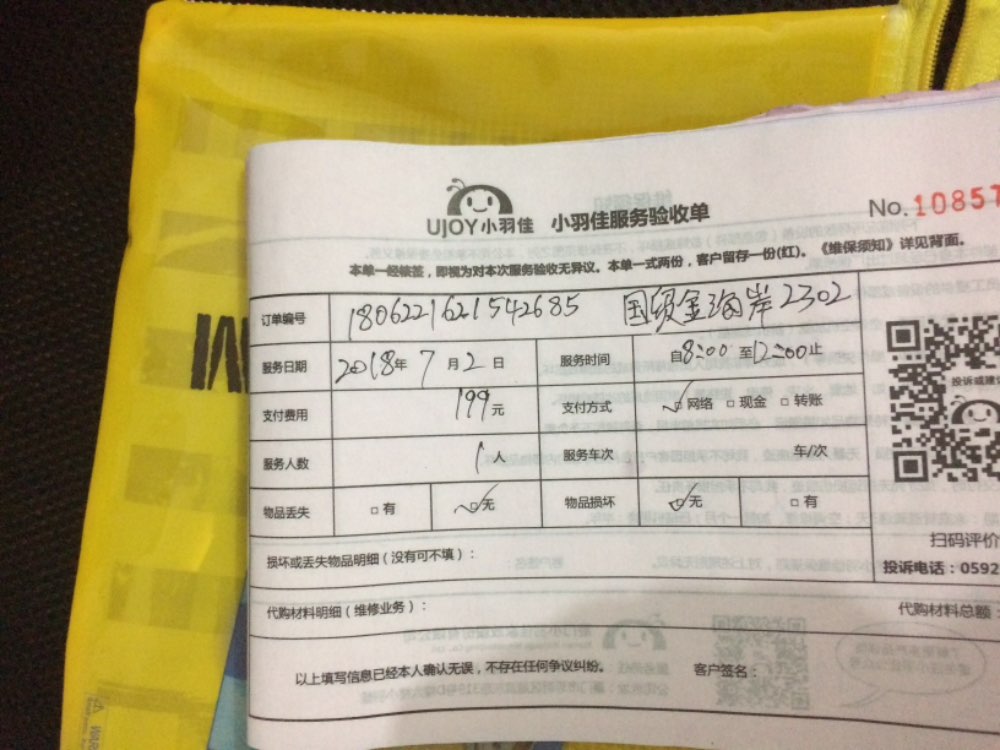 UJOY小羽佳 小羽佳服务验收单 No.10857
本单一经核签，即视为对本次服务验收无异议。本单一式两份，客户留存一份(红)。《维保须知》详见背面。
订单编号 1806221621542685 国贸金海岸2302
服务日期 2018年7月2日 服务时间 自8:00至12:00止
支付费用 199元 支付方式 网络 现金 转账
服务人数 1人 服务车次 车/次
物品丢失 有 无 物品损坏 无 有
投诉或建议
损坏或丢失物品明细（没有可不填）：
扫码评价
投诉电话：0592
代购材料明细（维修业务）：
代购材料总额：
以上填写信息已经本人确认无误，不存在任何争议纠纷。 客户签名：